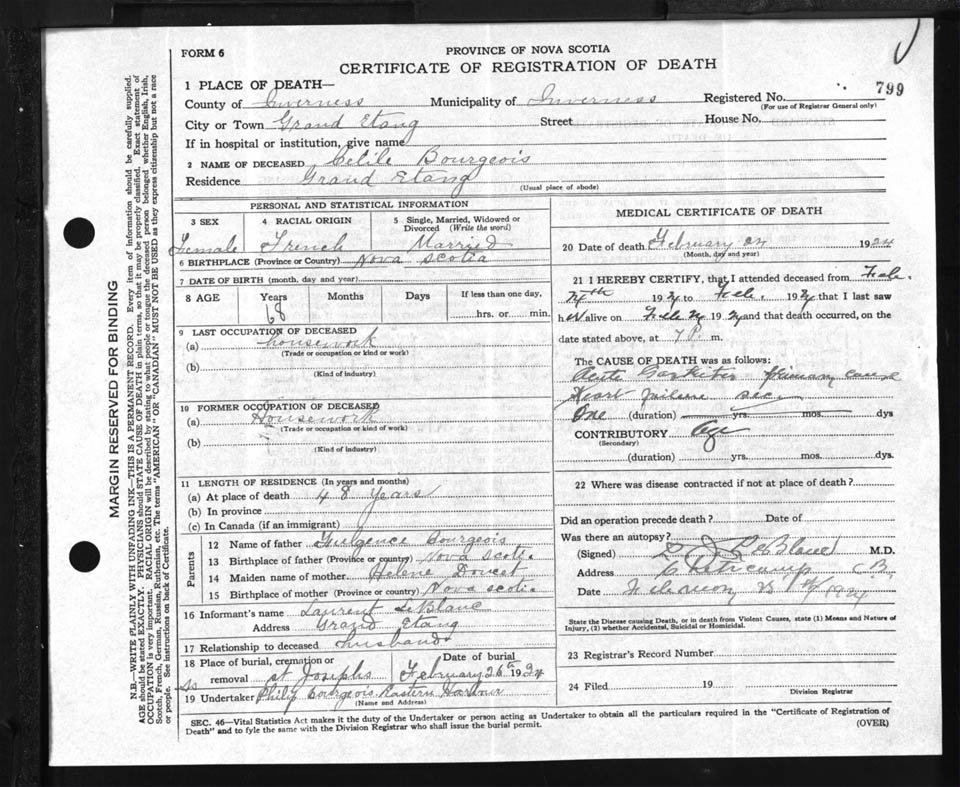 FORM 6
PROVINCE OF NOVA SCOTIA
CERTIFICATE OF REGISTRATION OF DEATH
799
1 PLACE OF DEATH—
County of Inverness Municipality of Inverness Registered No.
(For use of Registrar General only)
City or Town Grand Etang Street House No.
If in hospital or institution, give name
2 NAME OF DECEASED Celile Bourgeois
Residence Grand Etang
(Usual place of abode)
PERSONAL AND STATISTICAL INFORMATION
3 SEX 4 RACIAL ORIGIN 5 Single, Married, Widowed or Divorced (Write the word)
Female French Married
6 BIRTHPLACE (Province or Country) Nova Scotia
7 DATE OF BIRTH (month, day and year)
8 AGE Years Months Days If less than one day,
68 hrs. or min.
9 LAST OCCUPATION OF DECEASED
(a) housework
(Trade or occupation or kind or work)
(b)
(Kind of industry)
10 FORMER OCCUPATION OF DECEASED
(a) Housework
(Trade or occupation or kind of work)
(b)
(Kind of industry)
11 LENGTH OF RESIDENCE (In years and months)
(a) At place of death 48 years
(b) In province
(c) In Canada (if an immigrant)
Parents
12 Name of father Fulgence Bourgeois
13 Birthplace of father (Province or country) Nova Scotia
14 Maiden name of mother Helene Doucet
15 Birthplace of mother (Province or country) Nova Scotia
16 Informant's name Laurent LeBlanc
Address Grand Etang
17 Relationship to deceased husband
18 Place of burial, cremation or removal Date of burial
St Josephs February 26th 1924
19 Undertaker Philip Bourgeois Eastern Harbour
(Name and Address)
MEDICAL CERTIFICATE OF DEATH
20 Date of death February 24 1924
(Month, day and year)
21 I HEREBY CERTIFY, that I attended deceased from Feb.
24th 1924 to Feb. 1924 that I last saw
her alive on Feb 1924 and that death occurred, on the
date stated above, at 7 P. m.
The CAUSE OF DEATH was as follows:
primary cause
Heart failure sec.
One (duration) yrs. mos. dys
CONTRIBUTORY Age
(Secondary)
(duration) yrs. mos. dys.
22 Where was disease contracted if not at place of death?
Did an operation precede death? Date of
Was there an autopsy?
(Signed) LeBlanc M.D.
Address Cheticamp CB
Date February 1924
State the Disease causing Death, or in death from Violent Causes, state (1) Means and Nature of
Injury, (2) whether Accidental, Suicidal or Homicidal.
23 Registrar's Record Number
24 Filed 19
Division Registrar
SEC. 46—Vital Statistics Act makes it the duty of the Undertaker or person acting as Undertaker to obtain all the particulars required in the "Certificate of Registration of
Death" and to fyle the same with the Division Registrar who shall issue the burial permit. (OVER)
MARGIN RESERVED FOR BINDING
N.B.—WRITE PLAINLY WITH UNFADING INK—THIS IS A PERMANENT RECORD. Every item of information should be carefully supplied.
AGE should be stated EXACTLY. PHYSICIANS should STATE CAUSE OF DEATH in plain terms, so that it may be properly classified. Exact statement of
OCCUPATION is very important. RACIAL ORIGIN will be described by stating to what people or tongue the deceased person belonged whether English, Irish,
Scotch, French, German, Russian, Ruthenian, etc. The terms "AMERICAN" or "CANADIAN" MUST NOT BE USED as they express citizenship but not a race
or people. See instructions on back of Certificate.